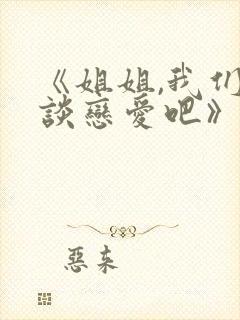 《姐姐,我们
談戀愛吧》
惡来